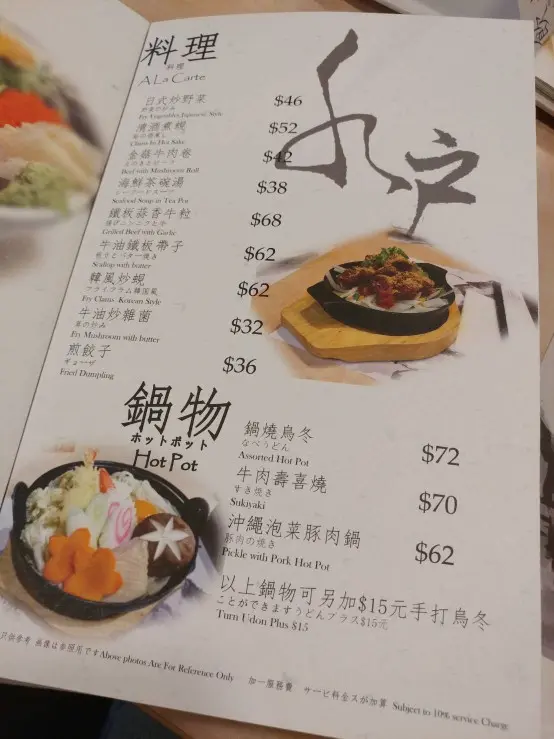 料理
料理
A La Carte
日式炒野菜 $46
野菜の炒み
Fry Vegetables Japanese Style
清酒煮蜆 $52
Clams In Hot Sake
金菇牛肉卷 $42
Beef with Mushroom Roll
海鮮茶碗湯 $38
シーフードスープ
Seafood Soup in Tea Pot
鐵板蒜香牛粒 $68
Grilled Beef with Garlic
牛油鐵板帶子 $62
Scallop with butter
韓風炒蜆 $62
フライクラム韓国風
Fry Clams Korean Style
牛油炒雜菌 $32
茸の炒み
Fry Mushroom with butter
煎餃子 $36
ギョーザ
Fried Dumpling
水戸
鍋物
ホットポット
Hot Pot
鍋燒烏冬 $72
なべうどん
Assorted Hot Pot
牛肉壽喜燒 $70
すき焼き
Sukiyaki
沖繩泡菜豚肉鍋 $62
豚肉の焼き
Pickle with Pork Hot Pot
以上鍋物可另加$15元手打烏冬
ことができますうどんプラス$15元
Turn Udon Plus $15
只供參考 画像は参照用ですAbove photos Are For Reference Only
加一服務費 サービ料金スが加算 Subject to 10% service Charge